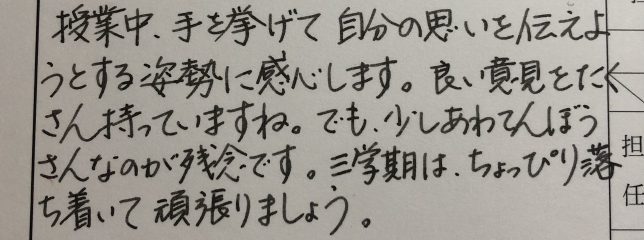 授業中、手を挙げて自分の思いを伝えよ
うとする姿勢に感心します。良い意見をたく
さん持っていますね。でも、少しあわてんぼう
さんなのが残念です。三学期は、ちょっぴり落
ち着いて頑張りましょう。
担
任